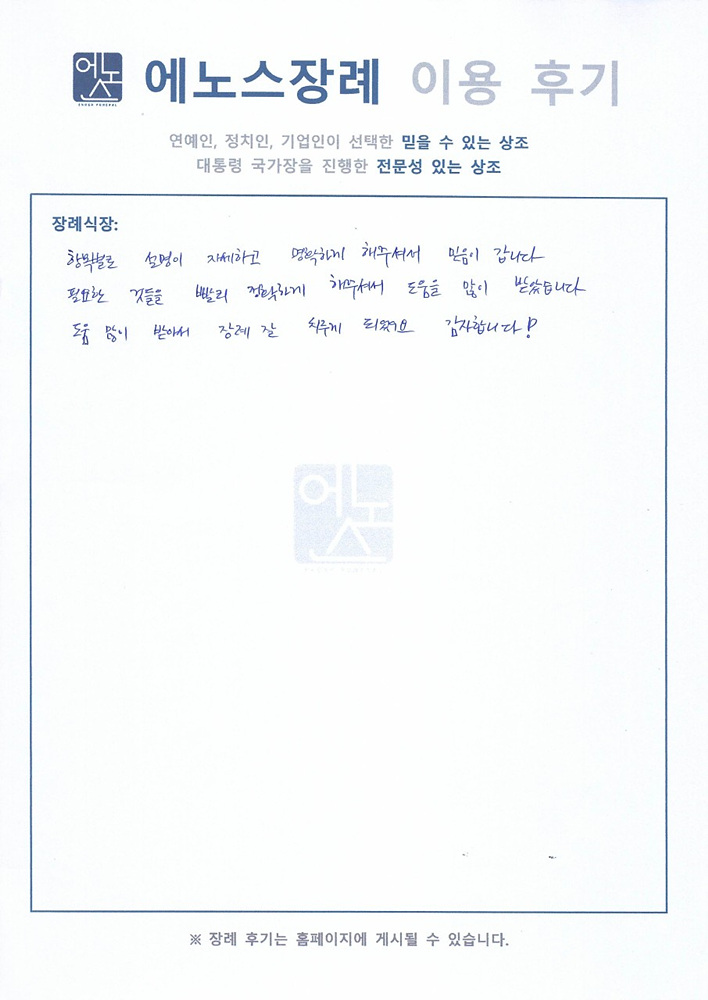 에노스
ENOS FUNERAL
에노스장례 이용 후기
연예인, 정치인, 기업인이 선택한 믿을 수 있는 상조
대통령 국가장을 진행한 전문성 있는 상조
장례식장:
항목별로 설명이 자세하고 명확하게 해주셔서 믿음이 갑니다
필요한 것들을 빨리 정확하게 해주셔서 도움을 많이 받았습니다
도움 많이 받아서 장례 잘 치루게 되었어요 감사합니다!
에노스
※ 장례 후기는 홈페이지에 게시될 수 있습니다.